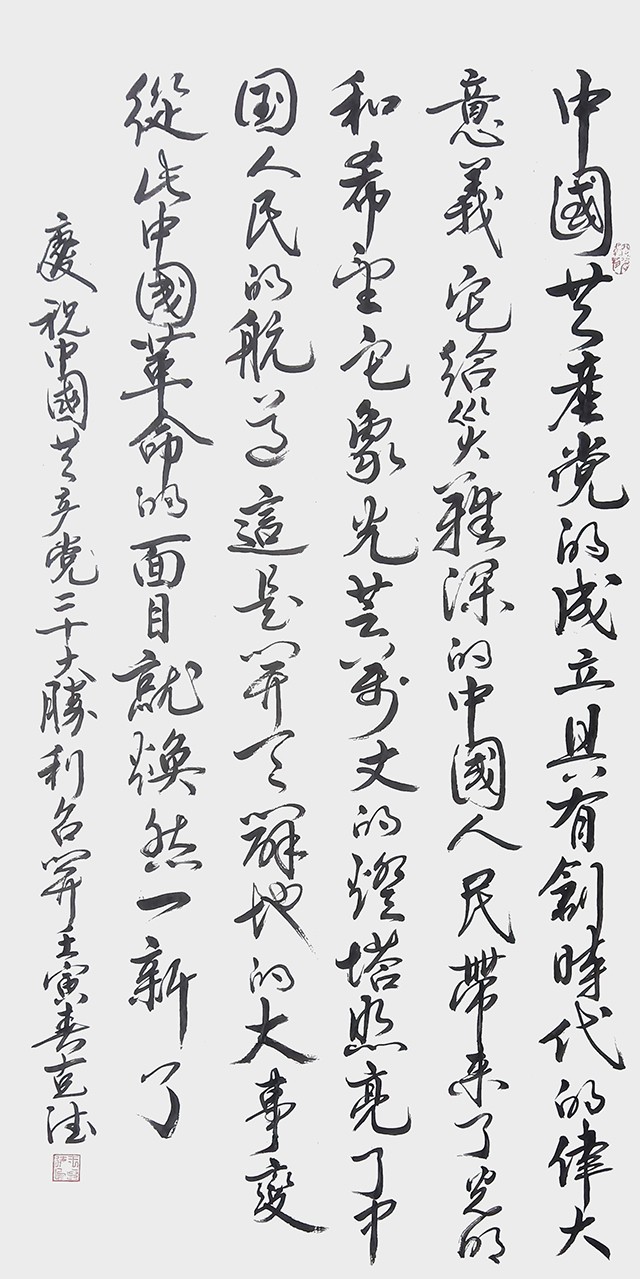 中國共產党的成立具有創時代的偉大
意義它給災難深的中國人民帶来了光明
和希望它象光芒萬丈的燈塔照亮了中
国人民的航道這是開天闢地的大事變
從此中國革命的面目就煥然一新了
慶祝中國共产党二十大勝利召開壬寅春克德